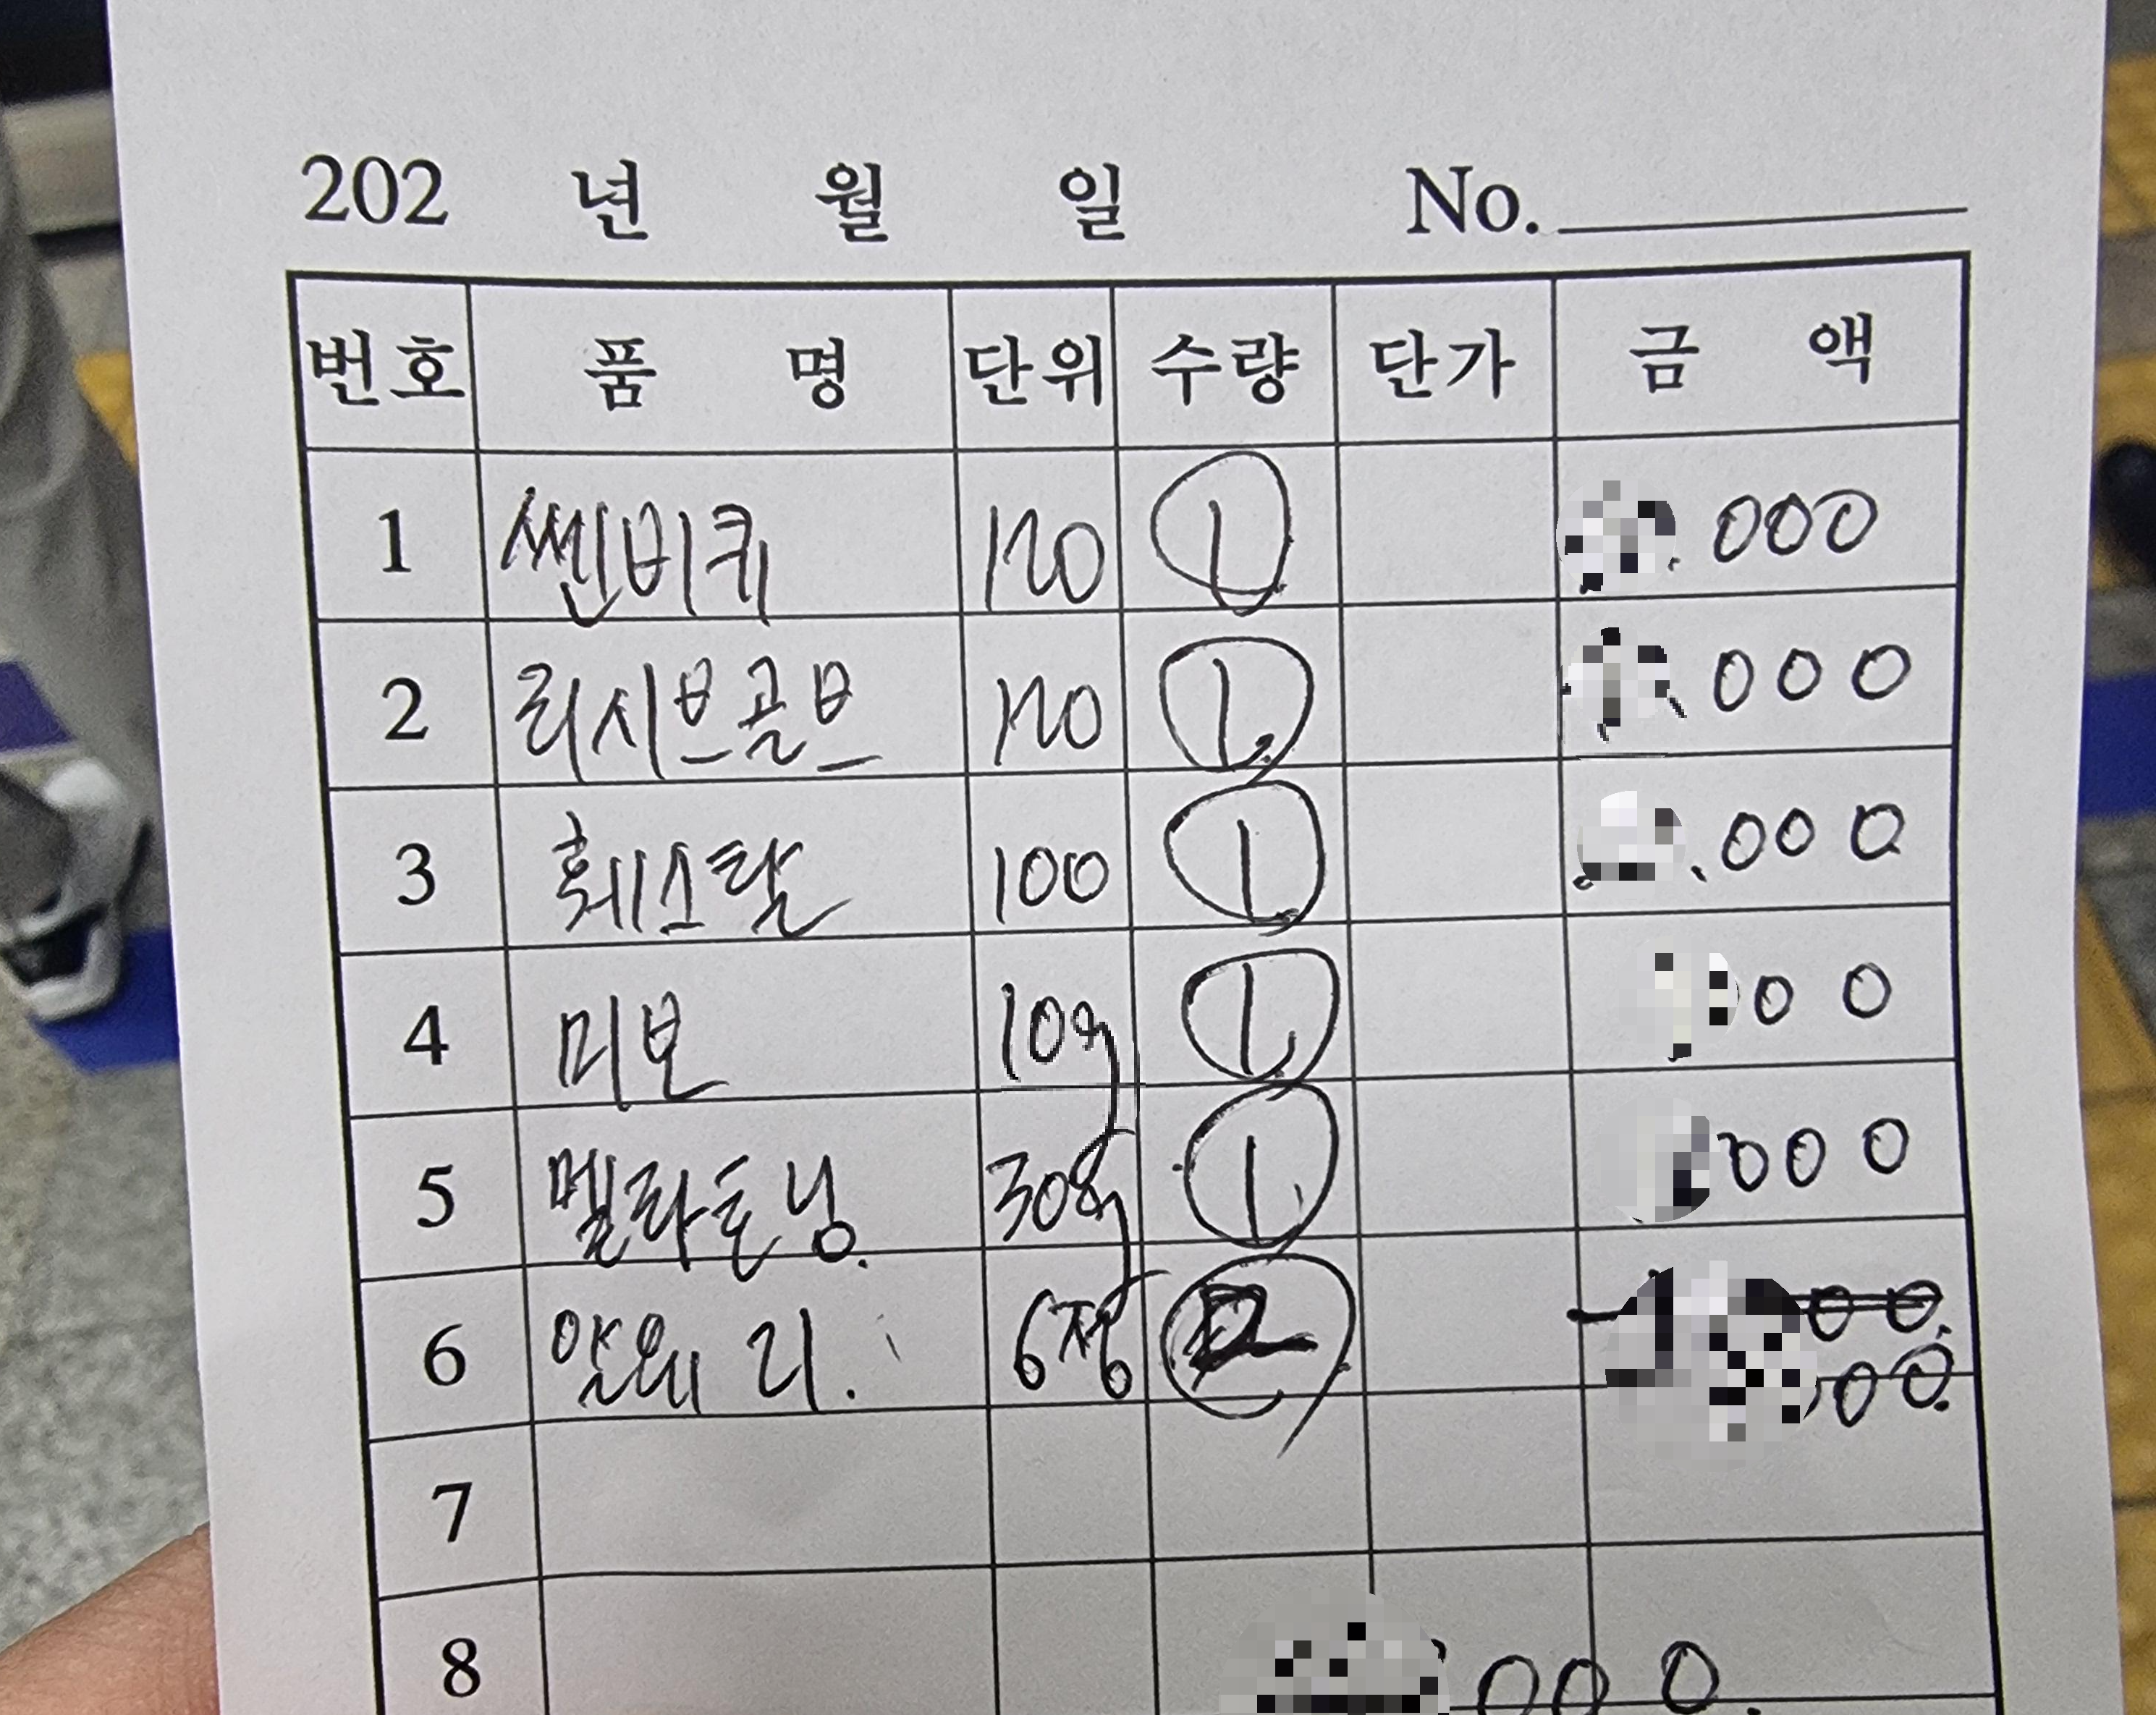 202 년 월 일 No.
번호 품 명 단위 수량 단가 금 액
1 쎈비퀵 120 1 .000
2 리시브골브 120 1 000
3 훼스탈 100 1 .000
4 미보 10g 1 00
5 멜라토닝 30정 1 000
6 알왜리. 6정 2 00. 00.
7
8 000.